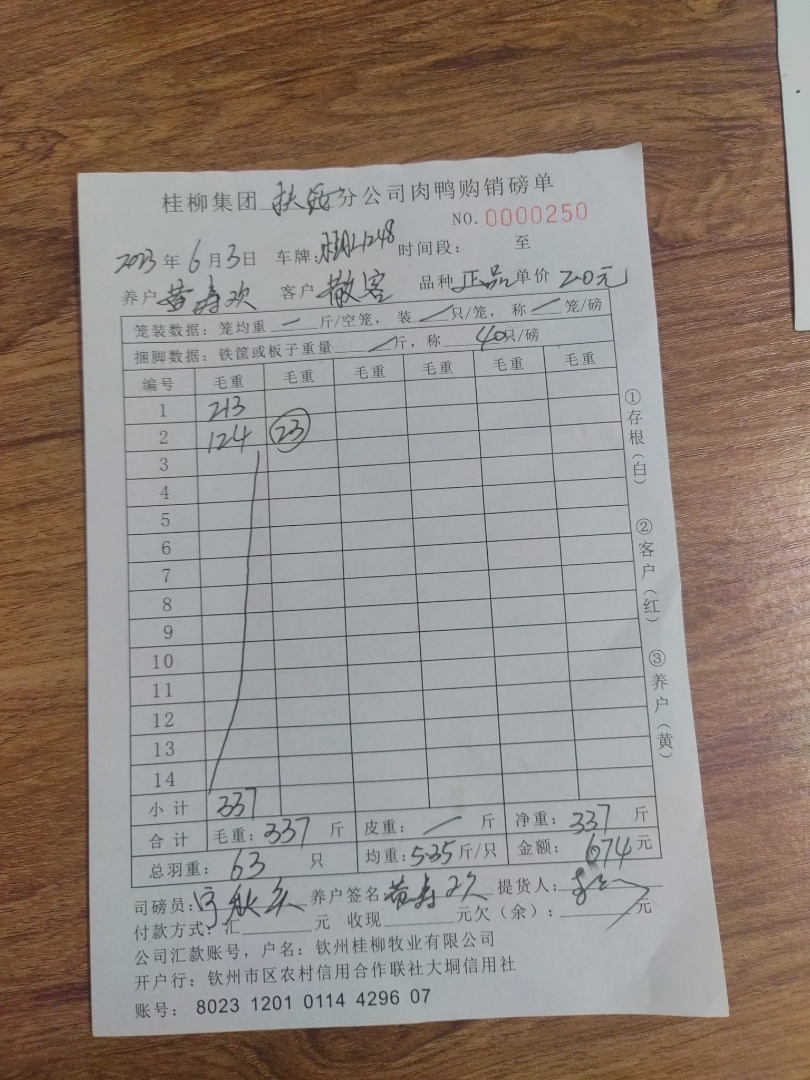 桂柳集团 扶绥 分公司肉鸭购销磅单
NO. 0000250
2023 年 6 月 3 日 车牌: 1248 时间段: 至
养户 黄寿欢 客户 散客 品种 正品 单价 2.0元
笼装数据: 笼均重 — 斤/空笼, 装 — 只/笼, 称 — 笼/磅
捆脚数据: 铁筐或板子重量 — 斤, 称 40 只/磅
编号 毛重 毛重 毛重 毛重 毛重 毛重
1 213
2 124 23
3
4
5
6
7
8
9
10
11
12
13
14
小计 337
合计 毛重: 337 斤 皮重: — 斤 净重: 337 斤
总羽重: 63 只 均重: 5.35 斤/只 金额: 674 元
司磅员: 养户签名 黄寿欢 提货人:
付款方式: 汇 元 收现 元欠(余): 元
公司汇款账号, 户名: 钦州桂柳牧业有限公司
开户行: 钦州市区农村信用合作联社大垌信用社
账号: 8023 1201 0114 4296 07
①存根(白)
②客户(红)
③养户(黄)